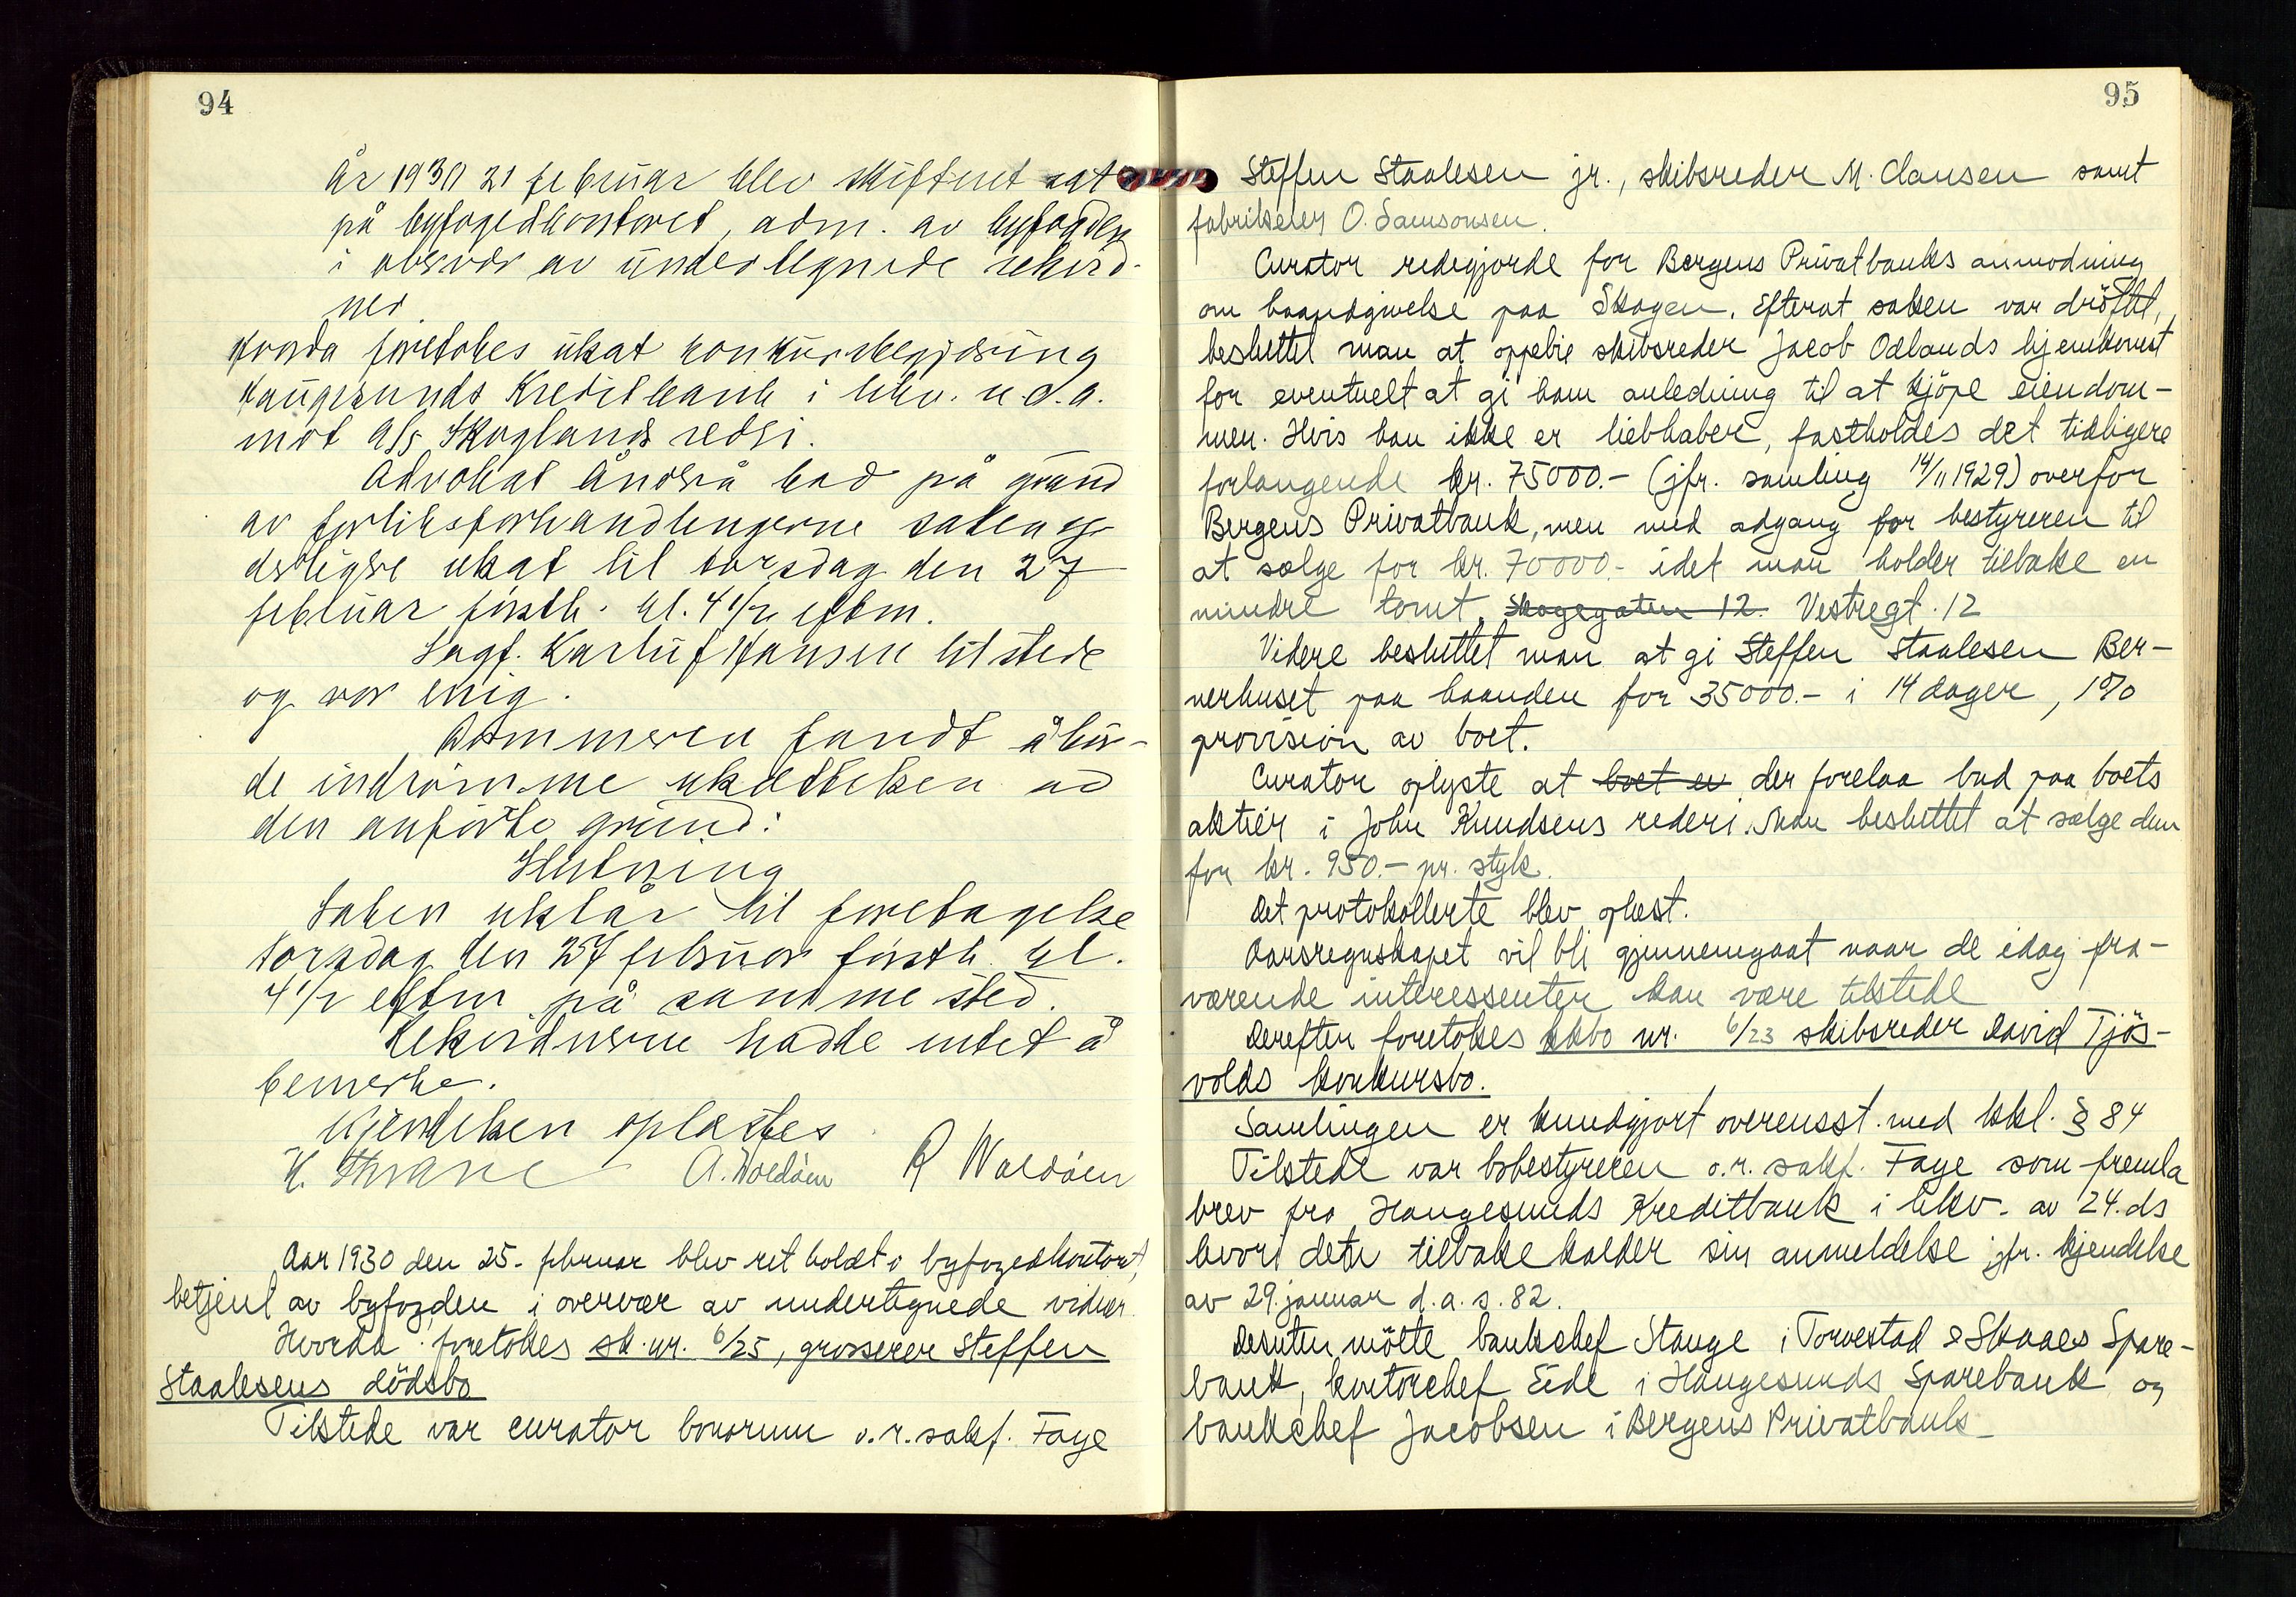 94
År 1930 21 februar blev skifteret sat
på byfogedkontoret, adm. av byfogden
i overvær av undertegnede rekvid-
ner.
Hvorda foretokes utsat konkursbegjæring
Haugesunds Kreditbank i likv. m.d.a.
mot A/S Skoglands rederi.
Advokat Andrå bad på grund
av forliksforhandlingerne saken 
derligere utsat til torsdag den 27
februar førsth. kl. 4 1/2 eftm.
Sagf. Karluf Hansen tilstede
og var enig.
Dommeren fandt å bur-
de indrømme utsættelsen av
den anførte grund:
Slutning
Saken utstår til foretagelse
torsdag den 27 februar førsth. kl.
4 1/2 eftm på samme sted.
hadde intet å
bemerke.
Kjendelsen oplæstes.
H. Thrane A. Woldøen R Waldøen
Aar 1930 den 25. februar blev ret holdt i byfogedkontoret,
betjent av byfogden i overvær av undertegnede vidner.
Hvorda foretokes sk. nr. 6/25, grosserer Steffen
Staalesens dödsbo
Tilstede var curator bonorum o.r.sakf. Faye
95
Steffen Staalesen jr., skibsreder M. Clausen samt
fabrikeier O. Samsonsen.
Curator redegjorde for Bergens Privatbanks anmodning
om haandgivelse paa Skogen. Efterat saken var dröftet,
besluttet man at oppebie skibsreder Jacob Odlands hjemkomst
for eventuelt at gi ham anledning til at kjöpe eiendom-
men. Hvis han ikke er liebhaber, fastholdes det tidligere
forlangende kr. 75000.- (jfr. samling 14/11 1929) overfor
Bergens Privatbank, men med adgang for bestyreren til
at sælge for kr. 70000.- idet man holder tilbake en
mindre tomt, Skogegaten 12. Vestregt. 12
Videre besluttet man at gi Steffen Staalesen Ber-
nerhuset paa haanden for 35000.- i 14 dager, 1%
provision av boet.
Curator oplyste at boet er der forelaa bud paa boets
aktier i John Knudsens rederi. Man besluttet at sælge dem
for kr. 950.- pr. styk.
Det protokollerte blev oplæst.
Aarsregnskapet vil bli gjennemgaat naar de idag fra-
værende interessenter kan være tilstede
Derefter foretokes kkbo nr. 6/23 skibsreder David Tjös-
volds konkursbo.
Samlingen er kundgjort overensst. med kkl. § 84
Tilstede var bobestyreren o.r. sakf. Faye som fremla
brev fra Haugesunds Kreditbank i likv. av 24. ds
hvori den tilbakekalder sin anmeldelse jfr. kjendelse
av 29. januar d.a. s. 82.
Desuten mötte bankchef Stange i Torvestad & Skaares Spare-
bank, kontorchef Eide i Haugesunds Sparebank og
bankchef Jacobsen i Bergens Privatbank